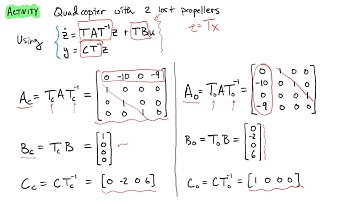 ACTIVITY Quadcopter with 2 lost propellers
Using { ż = TAT⁻¹z + TBu z=Tx
y = CT⁻¹z
A_c = T_c A T_c⁻¹ = [0 -10 0 -9; 1 0 0 0; 0 1 0 0; 0 0 1 0]
B_c = T_c B = [1; 0; 0; 0]
C_c = C T_c⁻¹ = [0 -2 0 6]
A_o = T_o A T_o⁻¹ = [0 1 0 0; -10 0 1 0; 0 0 0 1; -9 0 0 0]
B_o = T_o B = [0; -2; 0; 6]
C_o = C T_o⁻¹ = [1 0 0 0]